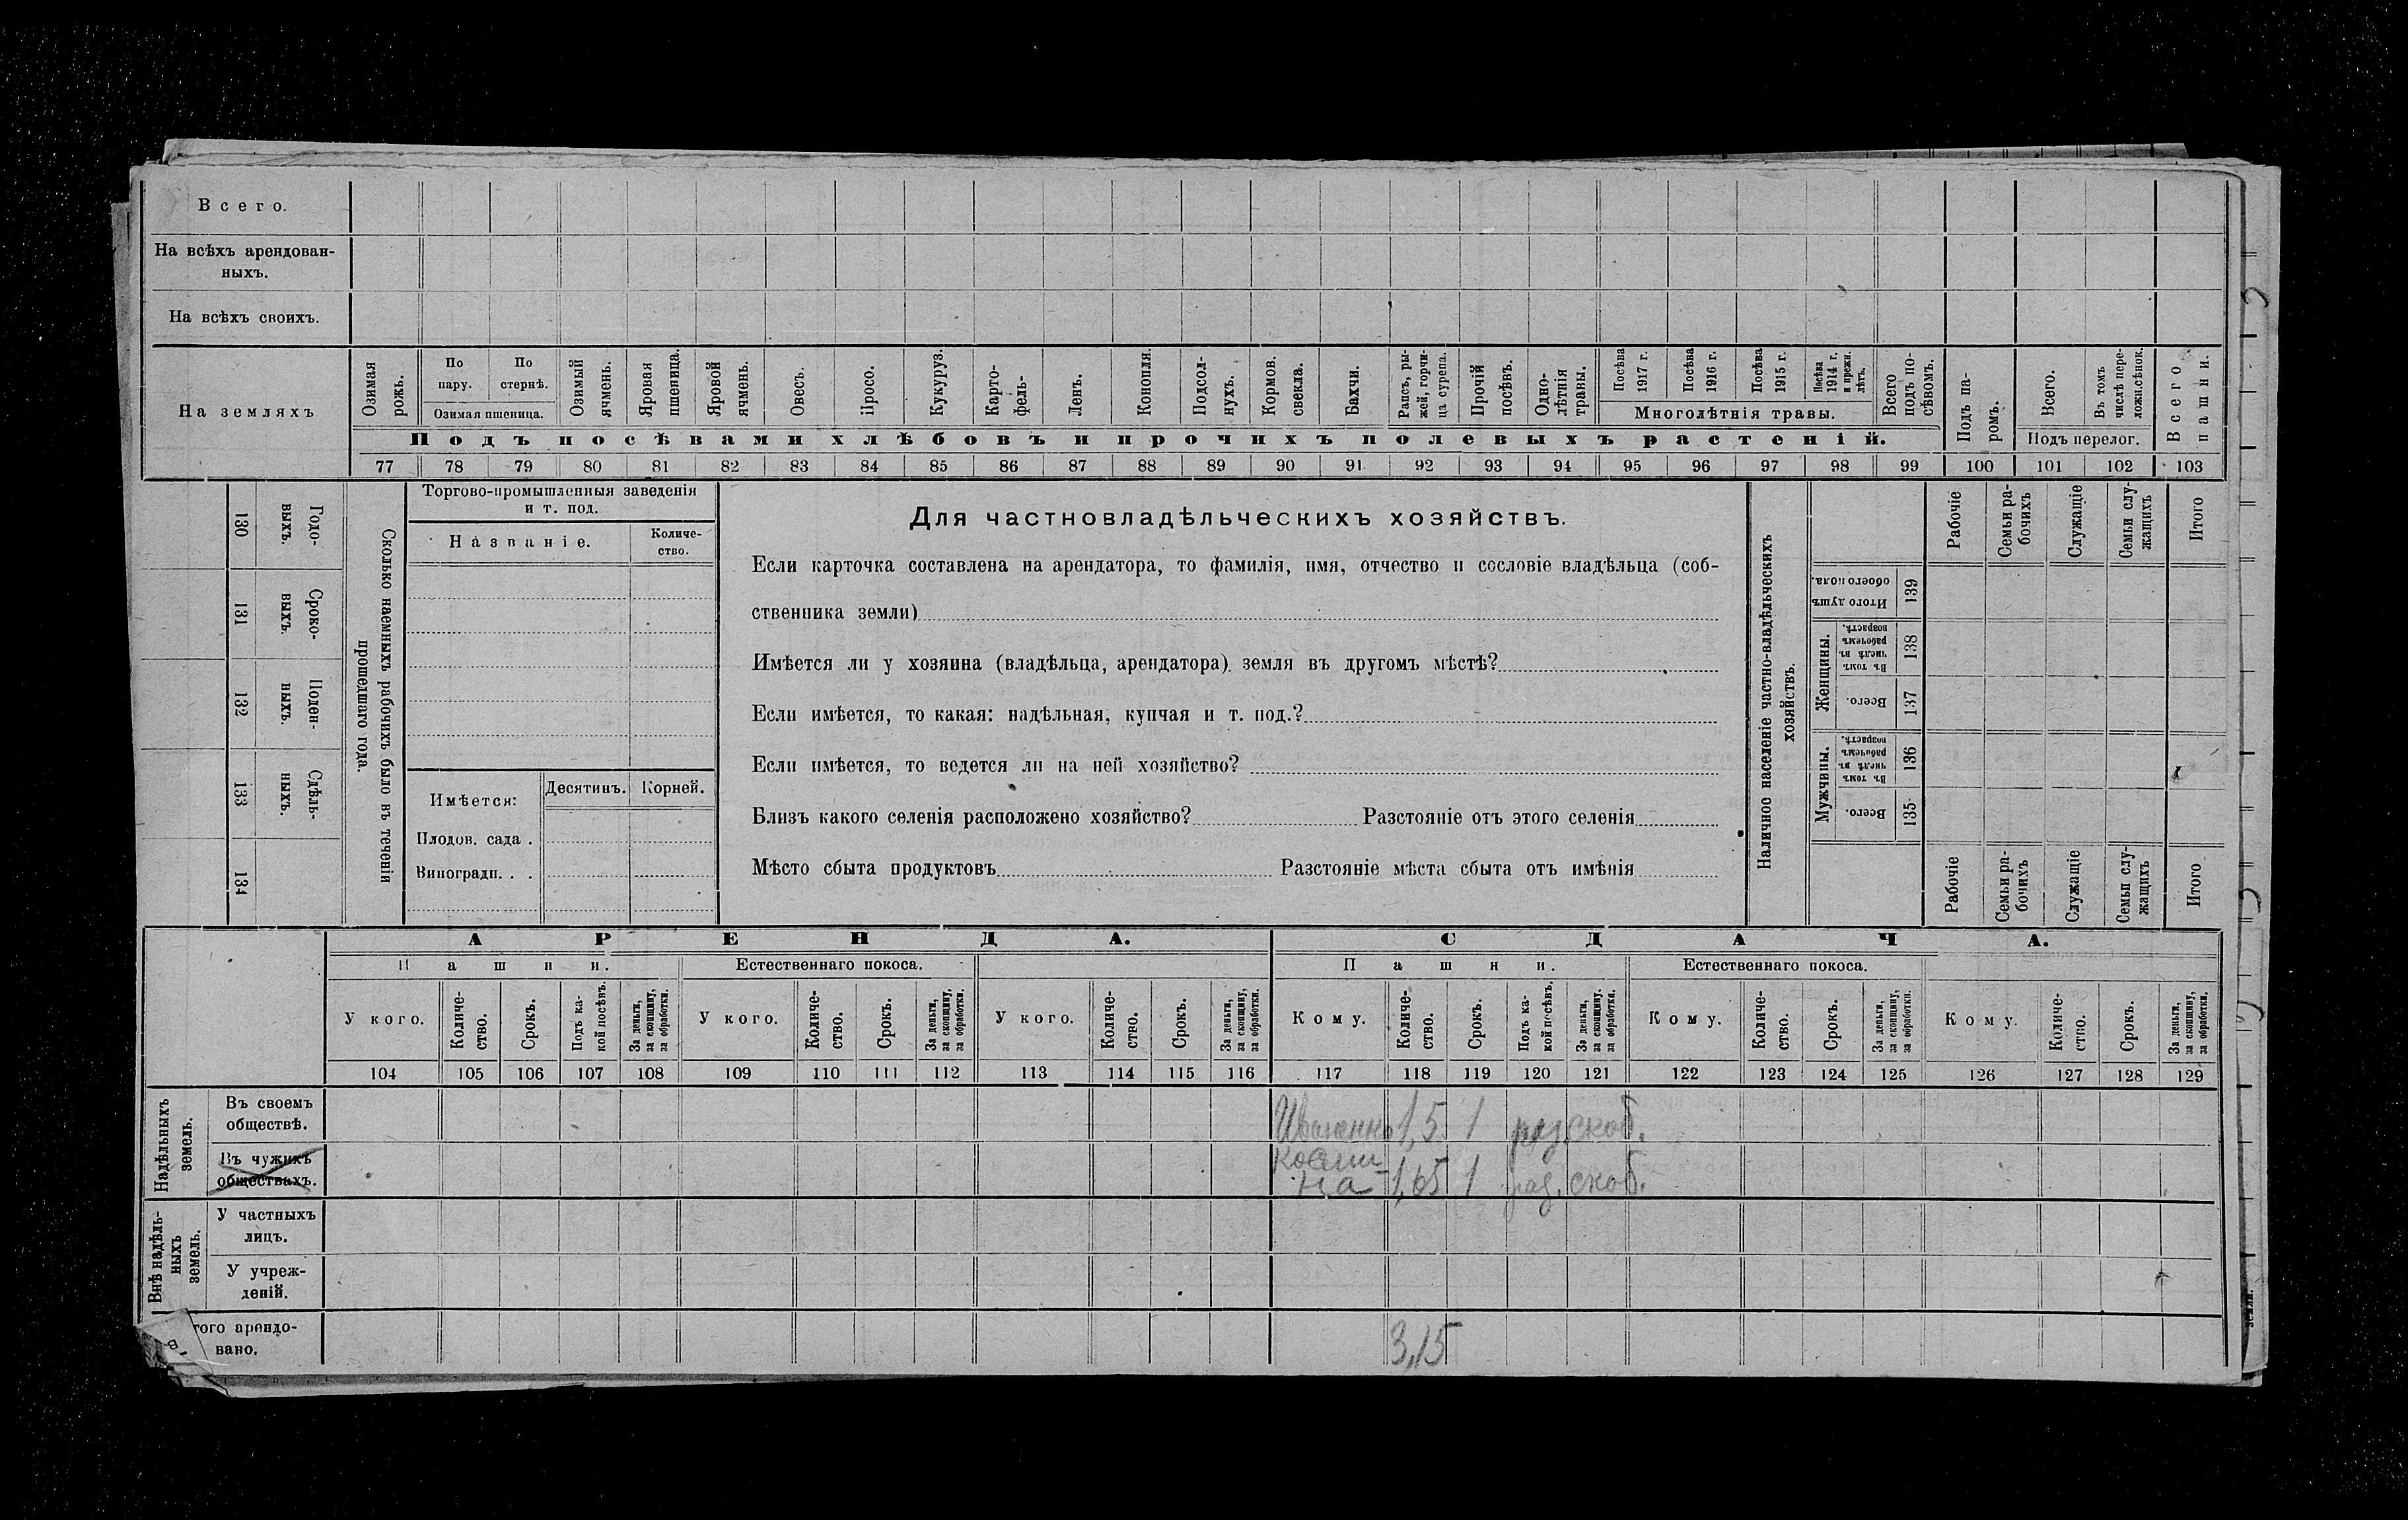 Всего.
На всѣхъ арендован-
ныхъ.
На всѣхъ своихъ.
На земляхъ
Озимая рожь.
По пару.
По стернѣ.
Озимая пшеница.
Озимый ячмень.
Яровая пшеница.
Яровой ячмень.
Овесъ.
Просо.
Кукуруз.
Карто-
фель-
Ленъ.
Конопля.
Подсол-
нухъ.
Кормов. свекла.
Бахчи.
Рапсъ, ры-
жей, горчи-
ца сурепа.
Прочій посѣвъ.
Одно-
лѣтнія травы.
Посѣва 1917 г.
Посѣва 1916 г.
Посѣва 1915 г.
Посѣва 1914 г. и прежн. лѣтъ.
Многолѣтнія травы.
Всего подъ по-
сѣвомъ.
Подъ посѣвами хлѣбовъ и прочихъ полевыхъ растеній.
Подъ па-
ромъ.
Всего.
Въ томъ числѣ пере-
ложн.сѣнок.
Подъ перелог.
Всего пашни.
77 78 79 80 81 82 83 84 85 86 87 88 89 90 91 92 93 94 95 96 97 98 99 100 101 102 103
130
Годо-
выхъ.
131
Сроко-
выхъ.
132
Поден-
ныхъ.
133
Сдѣль-
ныхъ.
134
Сколько наемныхъ рабочихъ было въ теченіи
прошедшаго года.
Торгово-промышленныя заведенія
и т. под.
Названіе.
Количе-
ство.
Имѣется:
Десятинъ.
Корней.
Плодов. сада .
Виноградн. . .
Для частновладѣльческихъ хозяйствъ.
Если карточка составлена на арендатора, то фамилія, имя, отчество и сословіе владѣльца (соб-
ственника земли)
Имѣется ли у хозяина (владѣльца, арендатора) земля въ другомъ мѣстѣ?
Если имѣется, то какая: надѣльная, купчая и т. под.?
Если имѣется, то ведется ли на ней хозяйство?
Близъ какого селенія расположено хозяйство? Разстояніе отъ этого селенія
Мѣсто сбыта продуктовъ Разстояніе мѣста сбыта отъ имѣнія
Наличное населеніе частно-владѣльческихъ
хозяйствъ.
Рабочіе
Семьи ра-
бочихъ
Служащіе
Семьи слу-
жащихъ
Итого
Итого душъ обоего пола.
139
Женщины.
Въ томъ числѣ въ рабочемъ возрастѣ.
138
Всего.
137
Мужчины.
Въ томъ числѣ въ рабочемъ возрастѣ.
136
Всего.
135
Рабочіе
Семьи ра-
бочихъ
Служащіе
Семьи слу-
жащихъ
Итого
АРЕНДА.
СДАЧА.
Пашни.
Естественнаго покоса.
Пашни.
Естественнаго покоса.
У кого.
Количе-
ство.
Срокъ.
Подъ ка-
кой посѣвъ.
За деньги, за скопщину, за обработки.
У кого.
Количе-
ство.
Срокъ.
За деньги, за скопщину, за обработки.
У кого.
Количе-
ство.
Срокъ.
За деньги, за скопщину, за обработки.
Кому.
Количе-
ство.
Срокъ.
Подъ ка-
кой посѣвъ.
За деньги, за скопщину, за обработки.
Кому.
Количе-
ство.
Срокъ.
За деньги, за скопщину, за обработки.
Кому.
Количе-
ство.
Срокъ.
За деньги, за скопщину, за обработки.
104 105 106 107 108 109 110 111 112 113 114 115 116 117 118 119 120 121 122 123 124 125 126 127 128 129
Надѣльныхъ земель.
Въ своемъ
обществѣ.
1,5 1 скоп.
Въ чужихъ
обществахъ.
1,65 1 скоп.
Внѣ надѣль-
ныхъ земель.
У частныхъ
лицъ.
У учреж-
деній.
того арендо-
вано.
3,15
земли.